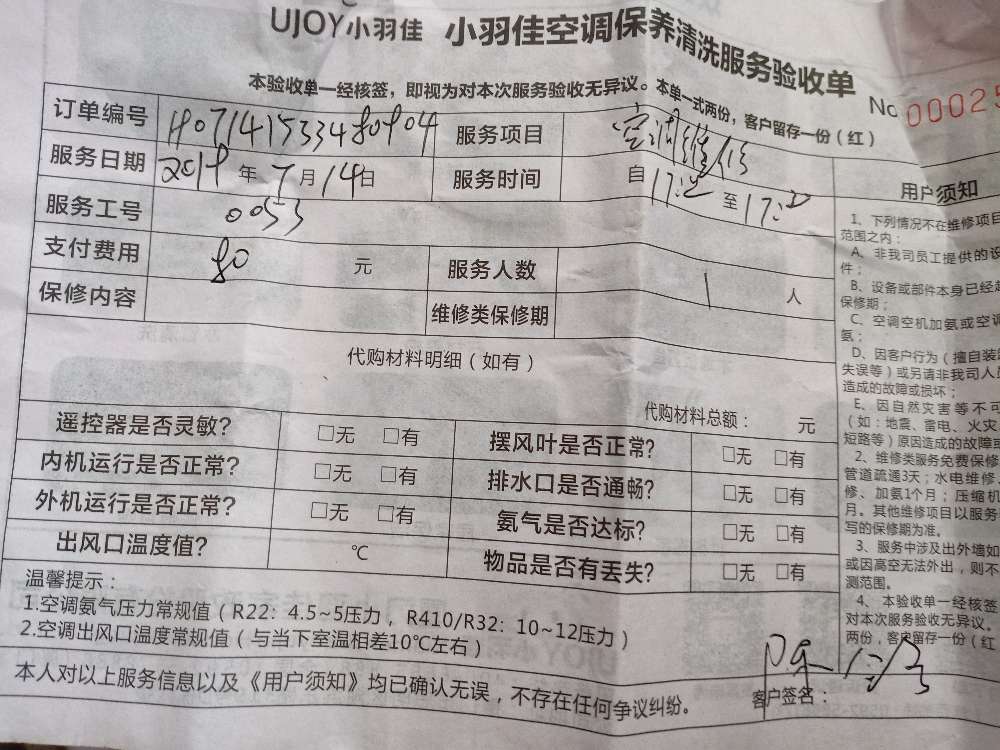 UJOY小羽佳 小羽佳空调保养清洗服务验收单
本验收单一经核签，即视为对本次服务验收无异议。本单一式两份，客户留存一份（红）
No 00025
订单编号 服务项目 空调维修
服务日期 2019 年 7 月 14 日 服务时间 自 17: 至 17:
服务工号 0053
支付费用 80 元 服务人数 1 人
保修内容 维修类保修期
代购材料明细（如有）
代购材料总额： 元
遥控器是否灵敏? □无 □有 摆风叶是否正常? □无 □有
内机运行是否正常? □无 □有 排水口是否通畅? □无 □有
外机运行是否正常? □无 □有 氨气是否达标? □无 □有
出风口温度值? ℃ 物品是否有丢失? □无 □有
温馨提示：
1.空调氨气压力常规值（R22：4.5~5压力，R410/R32：10~12压力）
2.空调出风口温度常规值（与当下室温相差10℃左右）
本人对以上服务信息以及《用户须知》均已确认无误，不存在任何争议纠纷。
客户签名：
用户须知
1、下列情况不在维修项目
范围之内：
A、非我司员工提供的设
件；
B、设备或部件本身已经超
保修期；
C、空调空机加氨或空调
氨；
D、因客户行为（擅自装
失误等）或另请非我司人员
造成的故障或损坏；
E、因自然灾害等不可
（如:地震、雷电、火灾
短路等）原因造成的故障
2、维修类服务免费保修
管道疏通3天；水电维修、
修、加氨1个月；压缩机
月。其他维修项目以服务
写的保修期为准。
3、服务中涉及出外墙如
或因高空无法外出，则不
测范围。
4、本验收单一经核签
对本次服务验收无异议。
两份，客户留存一份（红